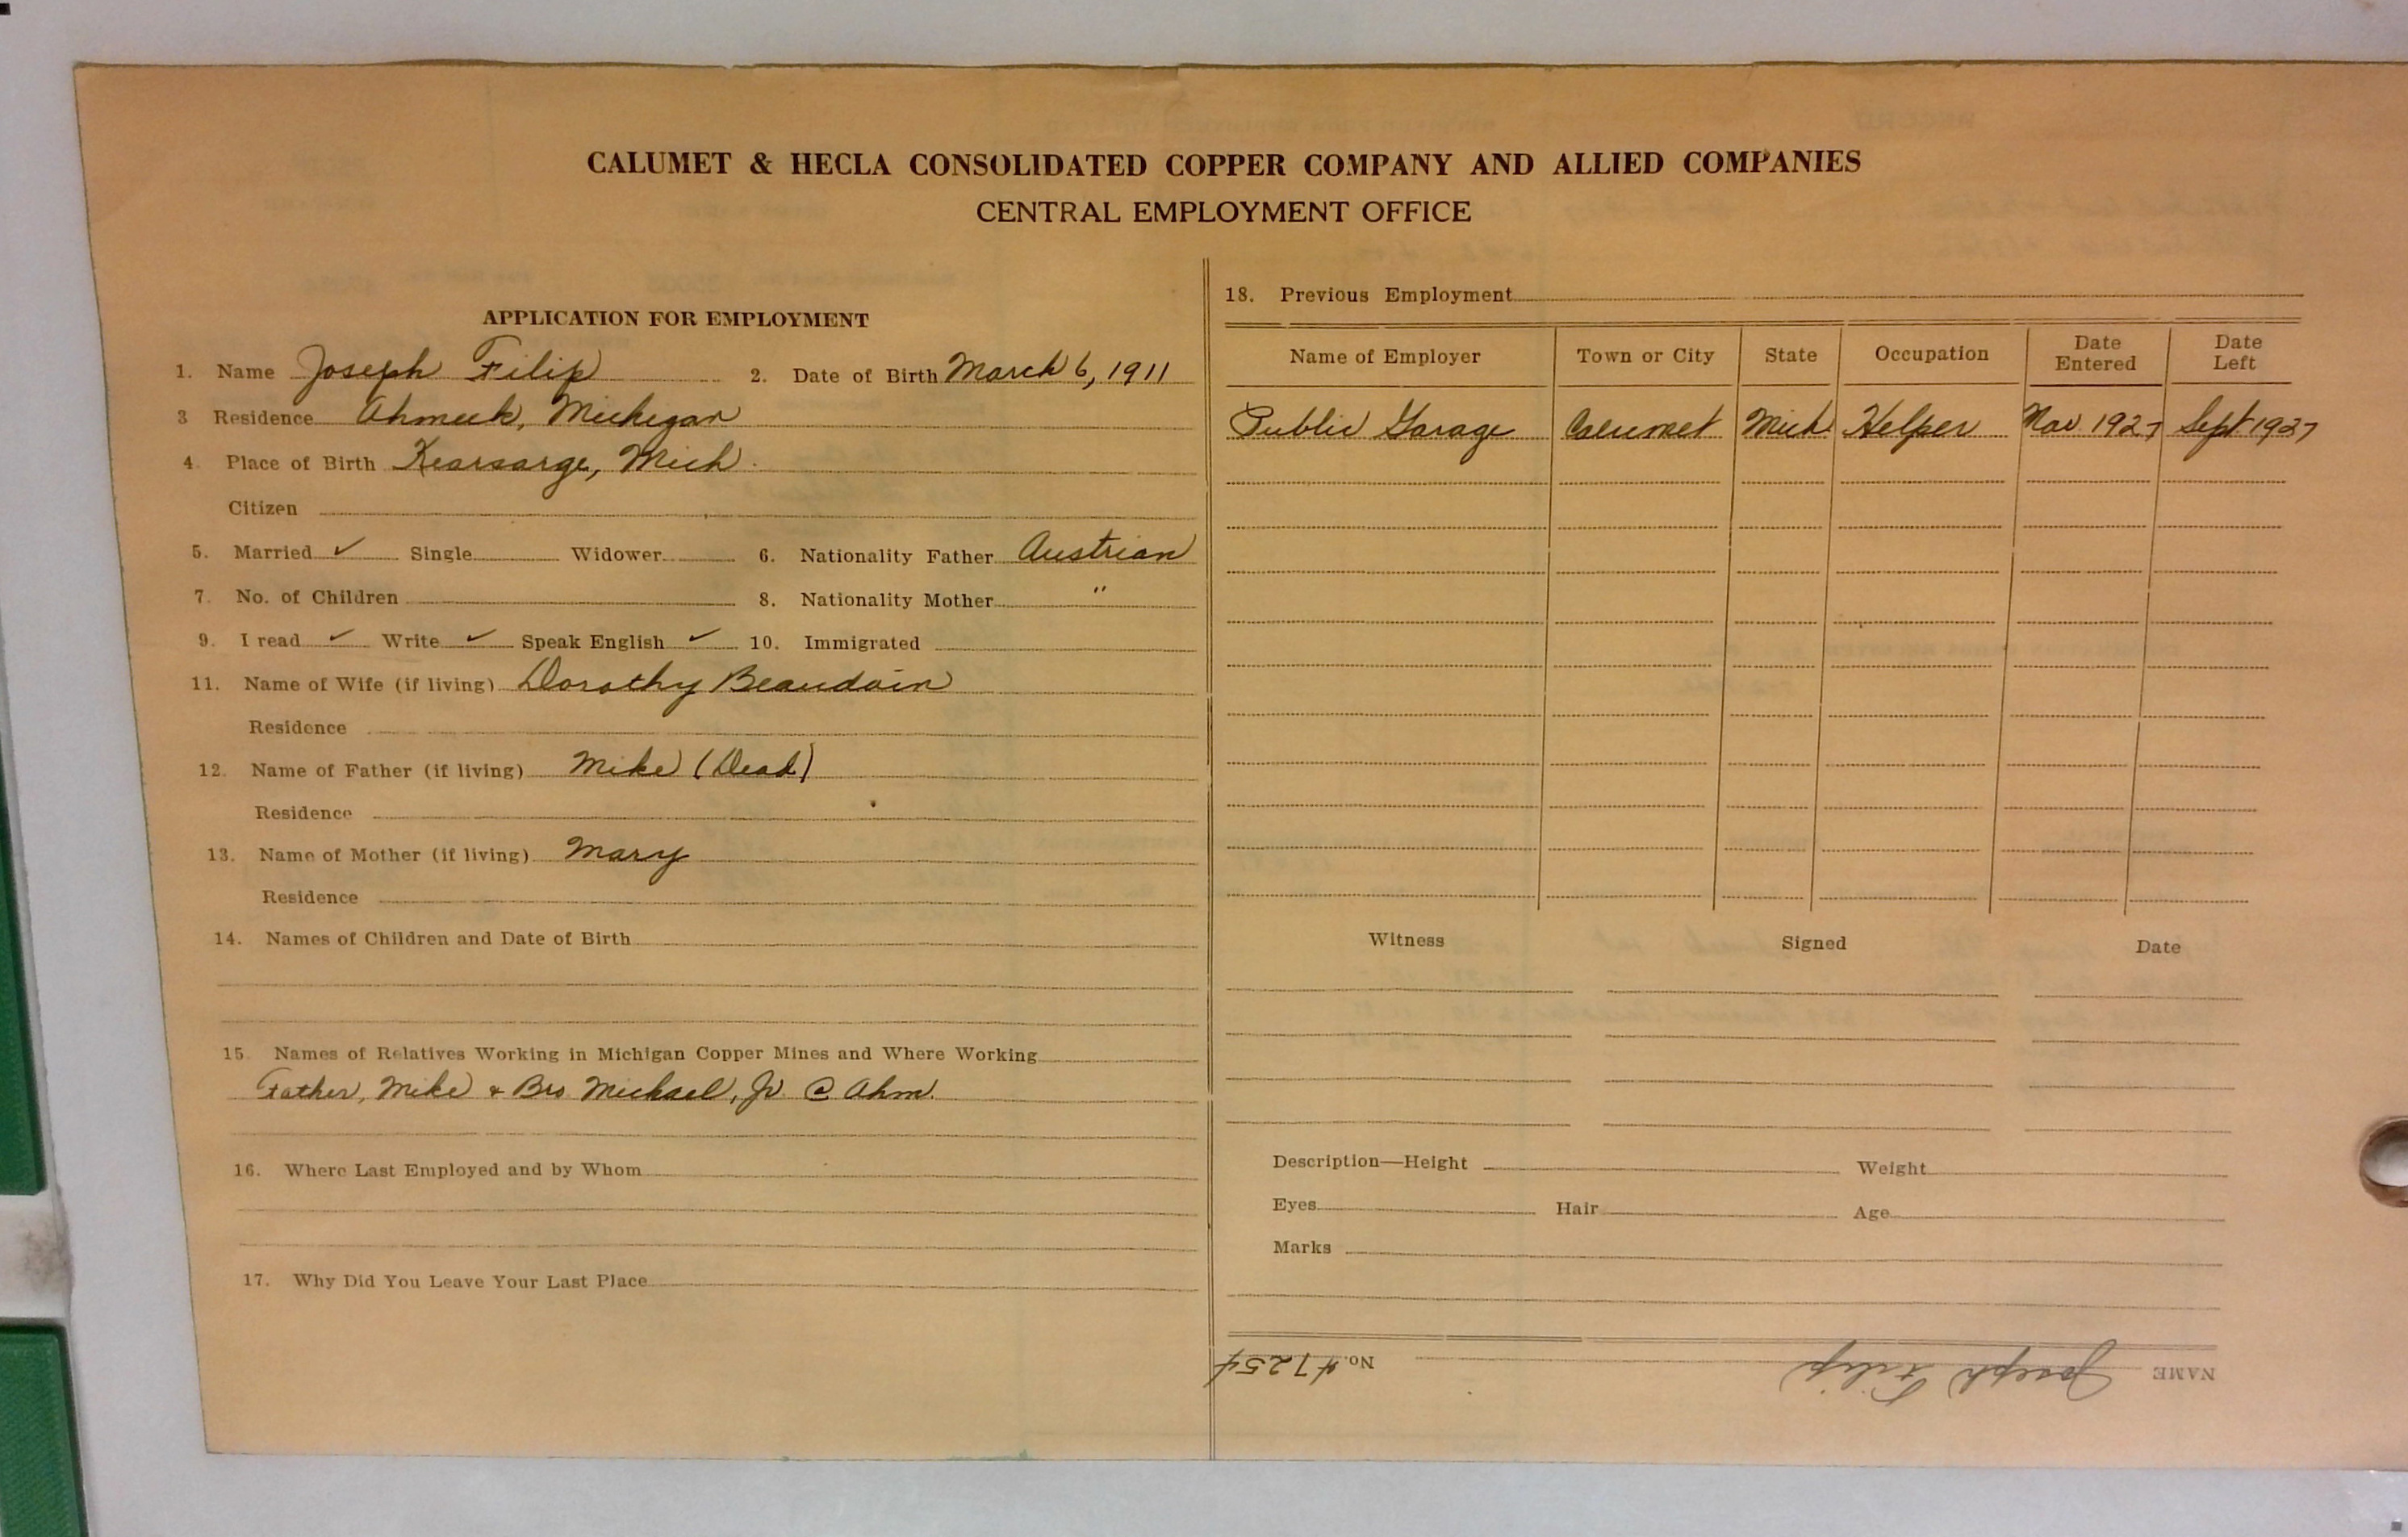 CALUMET & HECLA CONSOLIDATED COPPER COMPANY AND ALLIED COMPANIES
CENTRAL EMPLOYMENT OFFICE
APPLICATION FOR EMPLOYMENT
1. Name Joseph Filip 2. Date of Birth March 6, 1911
3 Residence Ahmeek, Michigan
4. Place of Birth Kearsarge, Mich.
Citizen
5. Married ✓ Single Widower 6. Nationality Father Austrian
7. No. of Children 8. Nationality Mother "
9. I read ✓ Write ✓ Speak English ✓ 10. Immigrated
11. Name of Wife (if living) Dorothy Beaudoin
Residence
12. Name of Father (if living) Mike (Dead)
Residence
13. Name of Mother (if living) Mary
Residence
14. Names of Children and Date of Birth
15. Names of Relatives Working in Michigan Copper Mines and Where Working
Father, Mike & Bro Michael, Jr. @ Ahm.
16. Where Last Employed and by Whom
17. Why Did You Leave Your Last Place
18. Previous Employment
Name of Employer Town or City State Occupation Date Entered Date Left
Public Garage Calumet Mich Helper Mar 1927 Sept 1927
Witness Signed Date
Description—Height Weight
Eyes Hair Age
Marks
NAME Joseph Filip No. 41254